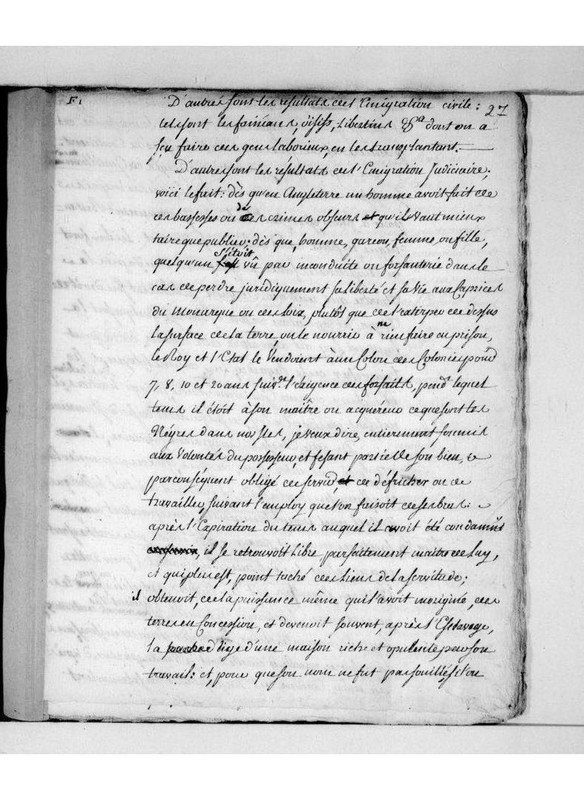 F:
27
D'autres sont les résultats de l'Emigration civile:
tels sont les faineans, oisifs, Libertins &ca dont on a
sçu faire des gens laborieux, en les transplantant.
D'autres sont les résultats de l'Emigration Judiciaire;
voici le fait: dès qu'en Angleterre un homme avoit fait de
ces bassesses ou de ces crimes obscurs qu'il vaut mieux
taire que publier; dès que, homme, garcon, femme ou fille,
quelqu'un s'étoit vû par inconduite ou forfanterie dans le
cas de perdre juridiquement sa liberté et sa vie aux Caprices
du Monarque ou des Loix, plutôt que de l'extirper de dessus
la surface de la terre, ou le nourrir à n'rien faire en prison,
le Roy et l'Etat le Vendoient à un Colon des Colonies pour
7, 8, 10 et 20 ans suivt. l'exigence des forfaits, pendt. lequel
tems il étoit à son maitre ou acquéreur ce que sont les
Négres dans nos Isles, je veux dire, entierement soumis
aux Volontés du possesseur, et fesant partie de son bien, &
par conséquent obligé de servir, de défricher ou de
travailler suivant l'employ que l'on faisoit de ses bras:
après l'Expiration du tems auquel il avoit été condamné
il se retrouvoit Libre parfaitement maitre de Luy,
et qui plus est, point taché des Liens de la servitude;
il obtenoit, de la puissance même qui l'avoit moriginé, des
terres en Concession, et devenoit souvent, après l'Esclavage,
la tige d'une maison riche et opulente par son
travail: et, pour que son nom ne fut pas souillé, s'il ou